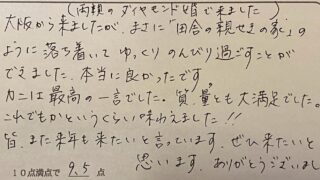 (両親のダイヤモンド婚で来ました)
大阪から来ましたが、まさに「田舎の親せきの家」の
ように落ち着いて ゆっくり のんびり過ごすことが
できました。本当に良かったです。
カニは最高の一言でした。質、量とも大満足でした。
これでもかというくらい味わえました!!
皆、また来年も来たいと言っています。ぜひ来たいと
思います。ありがとうございまし
10点満点で 9.5 点